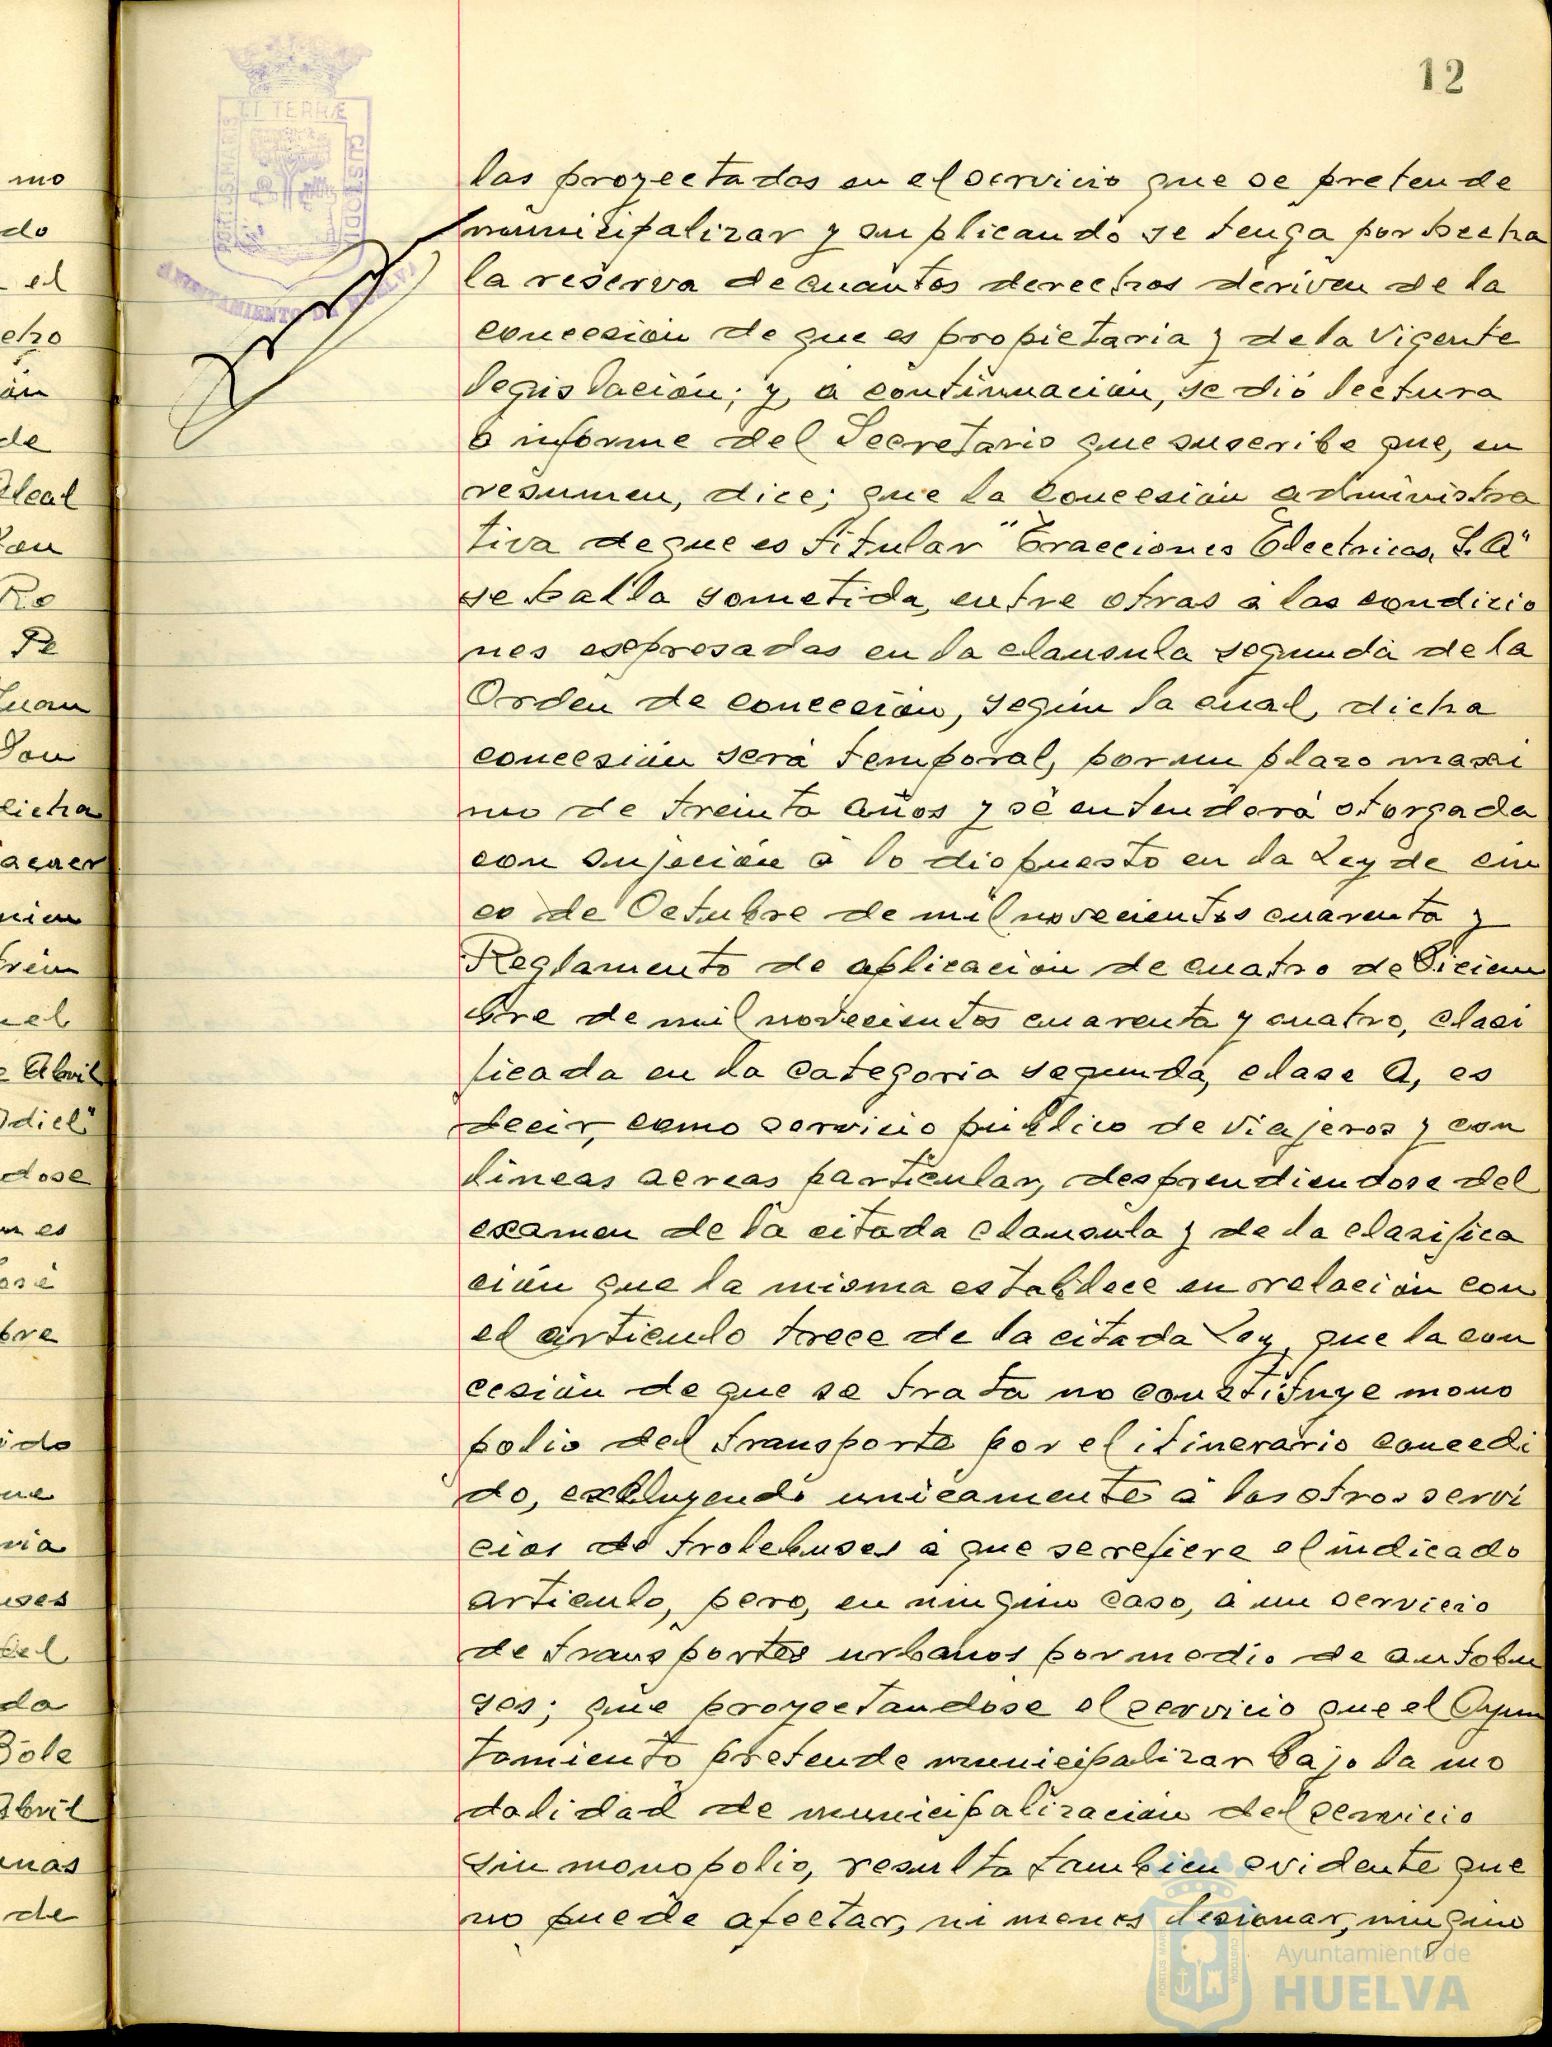 12
PORTUS MARIS
ET TERRÆ
CUSTODIA
AYUNTAMIENTO DE HUELVA
las proyectadas en el servicio que se pretende
municipalizar y suplicando se tenga por hecha
la reserva de cuantos derechos deriven de la
concesión de que es propietaria y de la vigente
legislación; y, á continuación, se dió lectura
á informe del Secretario que suscribe que, en
resumen, dice; que la concesión administra
tiva de que es titular "Tracciones Eléctricas, S.A"
se halla sometida, entre otras á las condicio
nes expresadas en la clausula segunda de la
Orden de concesión, según la cual, dicha
concesión será temporal, por un plazo maxi
mo de treinta años y se entenderá otorgada
con sujeción á lo dispuesto en la Ley de cin
co de Octubre de mil novecientos cuarenta y
Reglamento de aplicación de cuatro de Diciem
bre de mil novecientos cuarenta y cuatro, clasi
ficada en la categoria segunda, clase A, es
decir, como servicio público de viajeros y con
lineas aereas particular, desprendiendose del
examen de la citada clausula y de la clasifica
ción que la misma establece en relación con
el articulo trece de la citada Ley, que la con
cesión de que se trata no constituye mono
polio del transporte por el itinerario concedi
do, excluyendo unicamente á los otros servi
cios de trolebuses á que se refiere el indicado
articulo, pero, en ningún caso, á un servicio
de transportes urbanos por medio de autobu
ses; que proyectandose el servicio que el Ayun
tamiento pretende municipalizar bajo la mo
dalidad de municipalización del servicio
sin monopolio, resulta tambien evidente que
no puede afectar, ni menos lesionar, ningún
mo
do
el
cho
ón
de
Juan
dicha
Abril
Odiel"
dose
José
bre
ido
uses
da
Abril
de
Ayuntamiento de
HUELVA